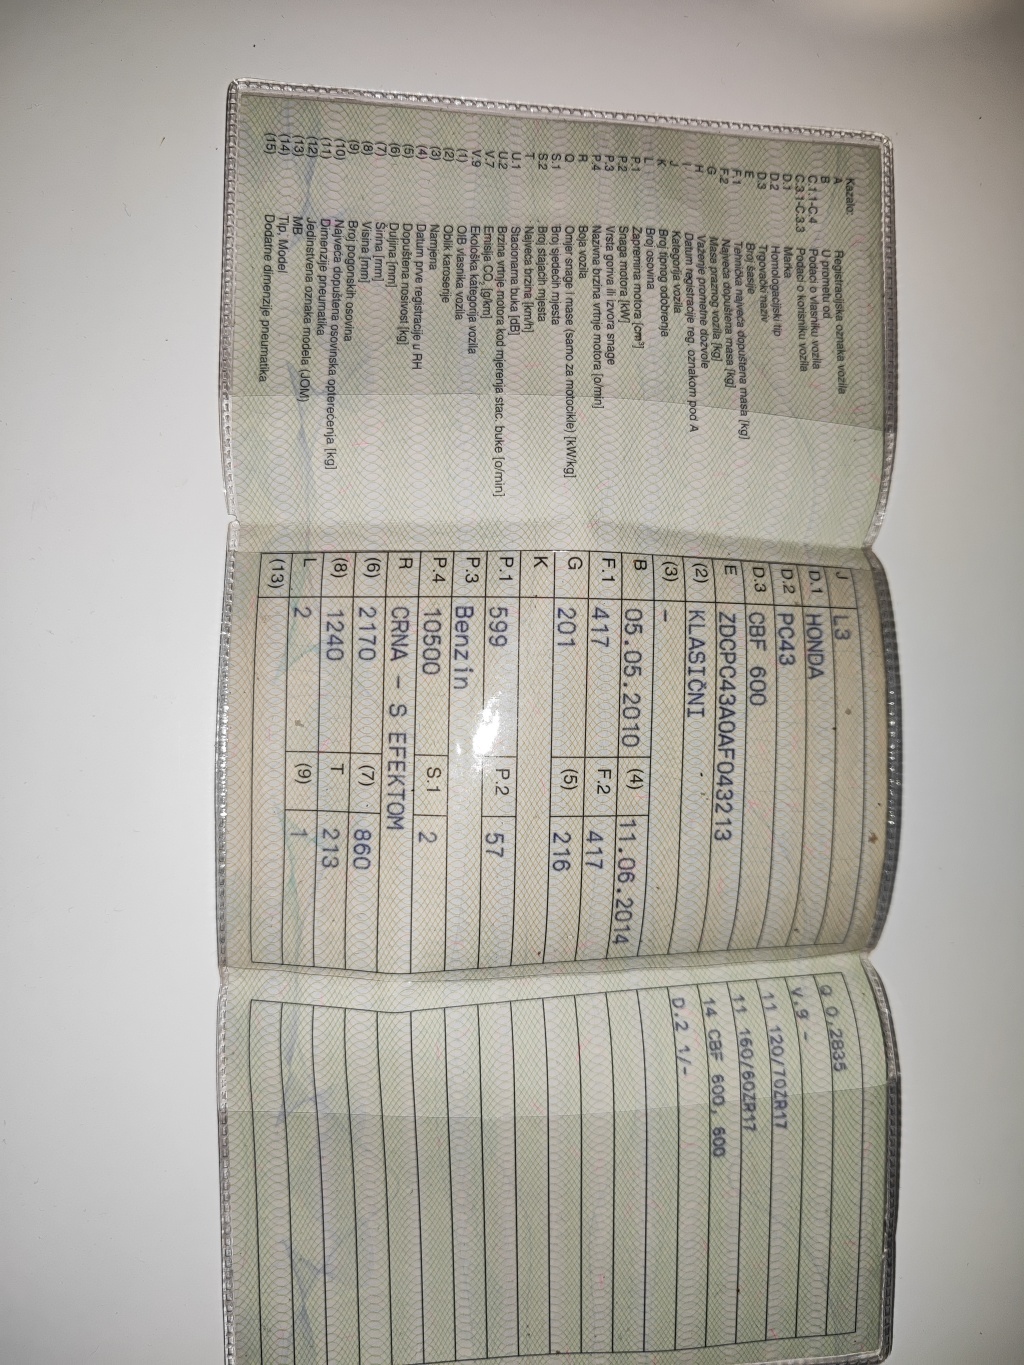 Kazalo:
A Registracijska oznaka vozila
B U prometu od
C.1.1-C.4 Podaci o vlasniku vozila
C.3.1-C.3.3 Podaci o korisniku vozila
D.1 Marka
D.2 Homologacijski tip
D.3 Trgovački naziv
E Broj šasije
F.1 Tehnička najveća dopuštena masa [kg]
F.2 Najveća dopuštena masa [kg]
G Masa praznog vozila [kg]
H Važenje prometne dozvole
I Datum registracije reg. oznakom pod A
J Kategorija vozila
K Broj tipnog odobrenja
L Broj osovina
P.1 Zapremina motora [cm³]
P.2 Snaga motora [kW]
P.3 Vrsta goriva ili izvora snage
P.4 Nazivna brzina vrtnje motora [o/min]
R Boja vozila
Q Omjer snage i mase (samo za motocikle) [kW/kg]
S.1 Broj sjedećih mjesta
S.2 Broj stajaćih mjesta
T Najveća brzina [km/h]
U.1 Stacionarna buka [dB]
U.2 Brzina vrtnje motora kod mjerenja stac. buke [o/min]
V.7 Emisija CO₂ [g/km]
V.9 Ekološka kategorija vozila
(1) OIB vlasnika vozila
(2) Oblik karoserije
(3) Namjena
(4) Datum prve registracije u RH
(5) Dopuštena nosivost [kg]
(6) Duljina [mm]
(7) Širina [mm]
(8) Visina [mm]
(9) Broj pogonskih osovina
(10) Najveća dopuštena osovinska opterećenja [kg]
(11) Dimenzije pneumatika
(12) Jedinstvena oznaka modela (JOM)
(13) MB
(14) Tip, Model
(15) Dodatne dimenzije pneumatika
J L3
D.1 HONDA
D.2 PC43
D.3 CBF 600
E ZDCPC43A0AF043213
(2) KLASIČNI
(3) –
B 05.05.2010 (4) 11.06.2014
F.1 417 F.2 417
G 201 (5) 216
K
P.1 599 P.2 57
P.3 Benzin
P.4 10500 S.1 2
R CRNA - S EFEKTOM
(6) 2170 (7) 860
(8) 1240 T 213
L 2 (9) 1
(13)
Q 0,2835
V.9 –
11 120/70ZR17
11 160/60ZR17
14 CBF 600, 600
D.2 1/–